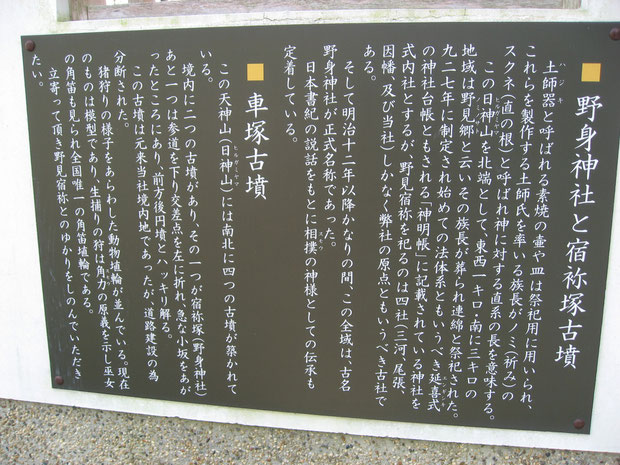 野身神社と宿祢塚古墳
土師器と呼ばれる素焼の壷や皿は祭祀用に用いられ、
これらを製作する土師氏を率いる族長がノミ（祈み）の
スクネ（直の根）と呼ばれ神に対する直系の長を意味する。
この日神山を北端として、東西一キロ・南に三キロの
地域は野見郷と云いその族長が葬られ連綿と祭祀された。
九二七年に制定され始めての法体系ともいうべき延喜式
の神社台帳ともされる「神明帳」に記載されている神社を
式内社とするが、野見宿祢を祀るのは四社（三河、尾張、
因幡 及び当社）しかなく弊社の原点ともいうべき古社で
ある。
そして明治十二年以降かなりの間、この全域は、古名
野身神社が正式名称であった。
日本書紀の説話をもとに相撲の神様としての伝承も
定着している。
車塚古墳
この天神山（日神山）には南北に四つの古墳が築かれて
いる。
境内に二つの古墳があり、その一つが宿祢塚（野身神社）
あと一つは参道を下り交差点を左に折れ、急な小坂をあが
ったところにあり、前方後円墳とハッキリ解る。
この古墳は元来当社境内地であったが、道路建設の為
分断された。
猪狩りの様子をあらわした動物埴輪が並んでいる。現在
のものは模型であり、生捕りの狩は角力の原義を示し巫女
の角笛も見られ全国唯一の角笛埴輪である。
立寄って頂き野見宿祢とのゆかりをしのんでいただき
たい。